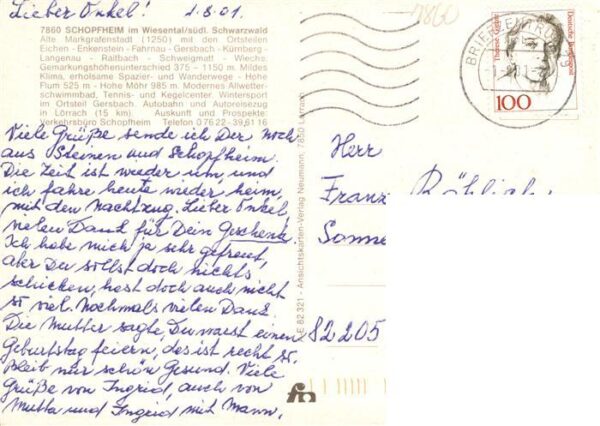 Lieber Onkel! 1.8.01.
7860
7860 SCHOPFHEIM im Wiesental/südl. Schwarzwald
Alte Markgrafenstadt (1250) mit den Ortsteilen
Eichen - Enkenstein - Fahrnau - Gersbach - Kürnberg -
Langenau - Raitbach - Schweigmatt - Wiechs;
Gemarkungshöhenunterschied 375 — 1150 m. Mildes
Klima, erholsame Spazier- und Wanderwege - Hohe
Flum 525 m - Hohe Möhr 985 m. Modernes Allwetter-
schwimmbad, Tennis- und Kegelcenter. Wintersport
im Ortsteil Gersbach. Autobahn und Autoreisezug
in Lörrach (15 km). Auskunft und Prospekte:
Verkehrsbüro Schopfheim Telefon 0 76 22 - 39 61 16
Viele Grüße sende ich Der noch
aus Steinen und Schopfheim.
Die Zeit ist wieder um und
ich fahre heute wieder heim,
mit den Nachtzug. Lieber Onkel,
vielen Dank für Dein Geschenk.
Ich habe mich ja sehr gefreut,
aber Du sollst doch nichts
schicken, hast doch auch nicht
so viel. Nochmals vielen Dank.
Die Mutter sagte, Du warst einen
Geburtstag feiern, das ist recht so.
Bleib nur schön Gesund. Viele
Grüße von Ingrid, auch von
Mutta und Ingrid mit Mann,
E 82.321 - Ansichtskarten-Verlag Neumann, 7850 Lörrach
BRIEFZENTRUM 79
Deutsche Bundespost
Therese Giehse
100
Herr
Franz
Sonne
82205